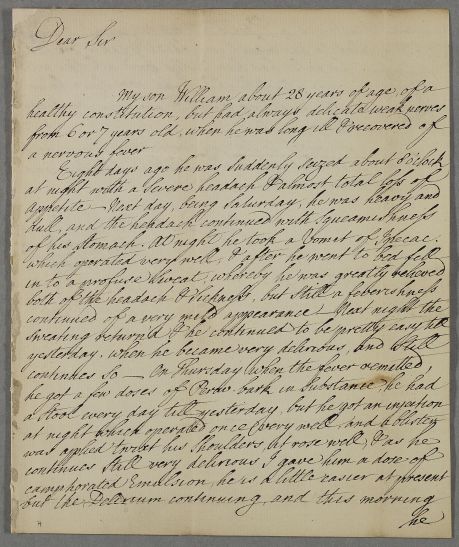 Dear Sir
My son William about 28 years of age, of a
healthy constitution, but had always delicate weak nerves
from 6 or 7 years old, when he was long ill & recovered of
a nervous fever
Eight days ago he was suddenly seized about 8 o'clock
at night with a severe headach & almost total loss of
appetite – Next day, being Saturday, he was heavy and
dull, and the headach continued with squeamishness
of his stomach. At night he took a vomit of Ipecac:
which operated very well, & after he went to bed fell
in to a profuse sweat, whereby he was greatly relieved
both of the headach & sickness, but still a feberishness
continued of a very mild appearance – Next night the
sweating return'd & he continued to be prettly easy till
yesterday, when he became very delirious, and still
continues so – On Thursday when the fever remitted
he got a few doses of Peruv: bark in substance, he had
a stool every day till yesterday, but he got an injection
at night which operated once very well, and a blister
was aplied 'twixt his shoulders, it rose well, & as he
continues still very delirious I gave him a dose of
camphorated Emulsion, he is a little easier at present
but the Delirium continuing, and this morning
he